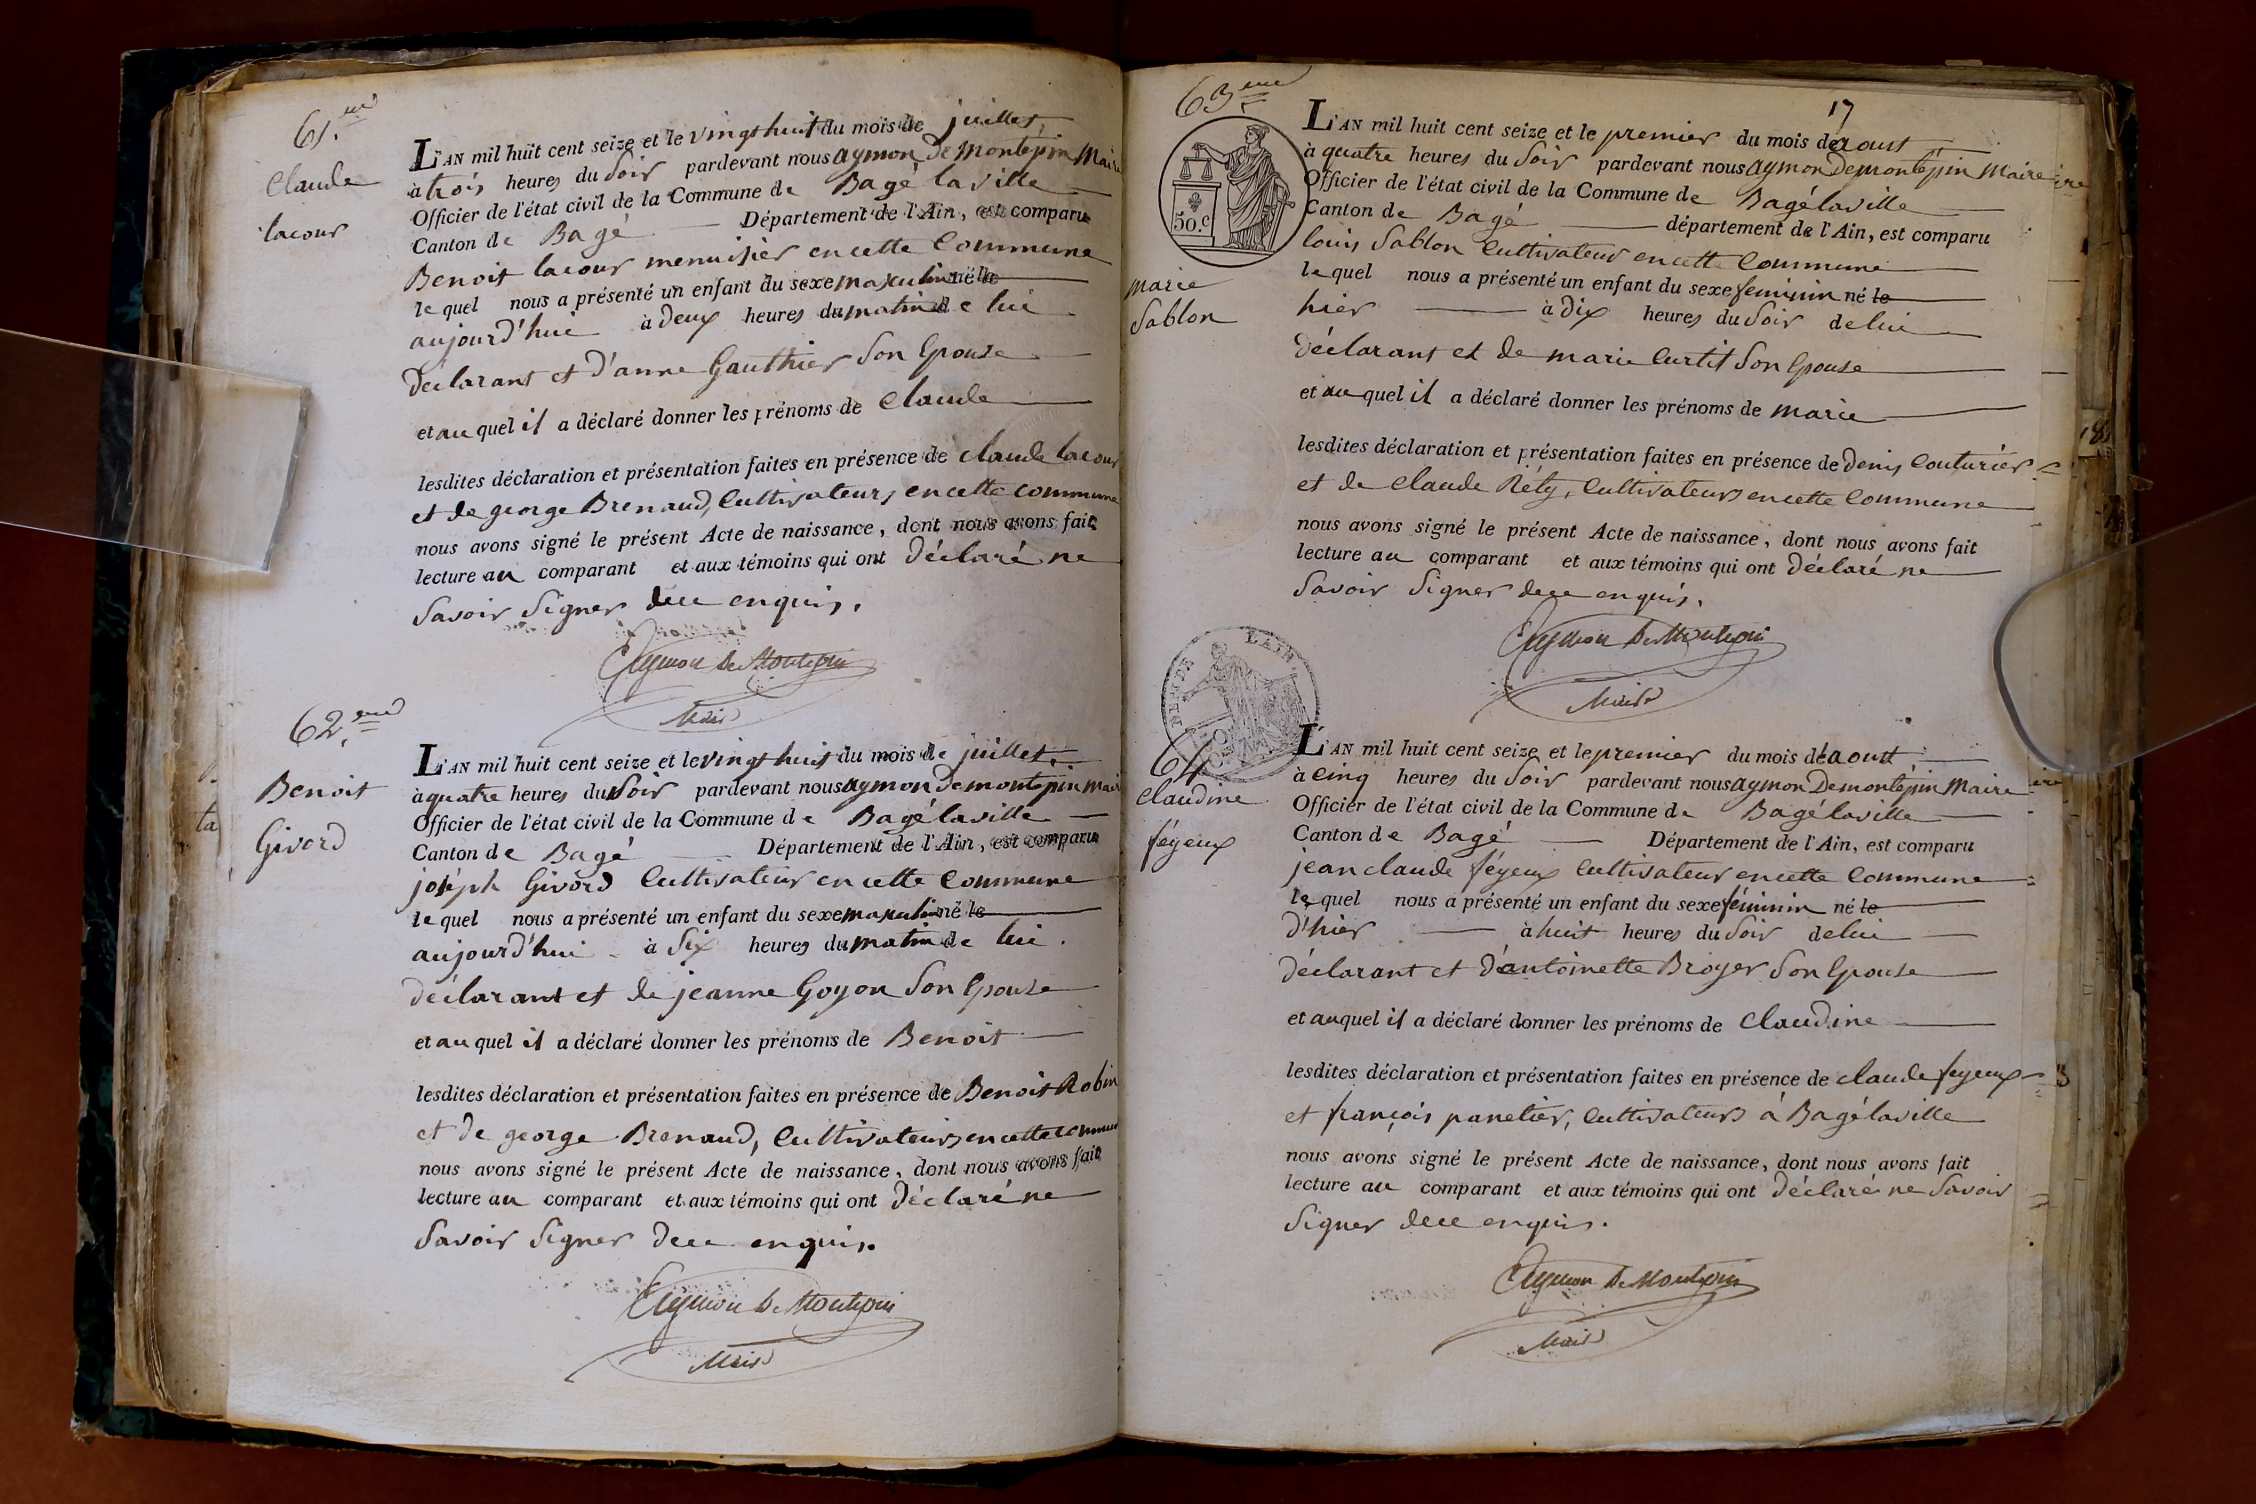 61.me
Claude
lacour
L'AN mil huit cent seize et le vingt huit du mois de juillet,
à trois heures du soir pardevant nous aymon De montépin Maire
Officier de l'état civil de la Commune de Bagé laville
Canton de Bagé Département de l'Ain, est comparu
Benoit lacour menuisier en cette Commune
le quel nous a présenté un enfant du sexe masculin né le
aujourd'hui à deux heures du matin de lui
déclarant et d'anne Gauthier Son Epouse
et au quel il a déclaré donner les prénoms de Claude
lesdites déclaration et présentation faites en présence de claude lacour
et de george Brenaud, Cultivateurs en cette commune
nous avons signé le présent Acte de naissance, dont nous avons fait
lecture au comparant et aux témoins qui ont déclaré ne
Savoir Signer de ce enquis.
Aymon De Montepin
Maire
62.eme
Benoit
Givord
L'AN mil huit cent seize et le vingt huit du mois de juillet,
à quatre heures du Soir pardevant nous aymon Demontépin Maire
Officier de l'état civil de la Commune de Bagé laville
Canton de Bagé Département de l'Ain, est comparu
joséph Givord Cultivateur en cette Commune
le quel nous a présenté un enfant du sexe masculin né le
aujourd'hui à Six heures du matin de lui
déclarant et de jeanne Goyon Son Epouse
et au quel il a déclaré donner les prénoms de Benoit
lesdites déclaration et présentation faites en présence de Benoit Robin
et de george Brenaud, Cultivateurs en cette commune
nous avons signé le présent Acte de naissance, dont nous avons fait
lecture au comparant et aux témoins qui ont déclaré ne
Savoir Signer de ce enquis.
Aymon De Montepin
Maire
17
63eme
50.c
marie
Sablon
L'AN mil huit cent seize et le premier du mois de aoust
à quatre heures du Soir pardevant nous aymon Demontépin Maire
Officier de l'état civil de la Commune de Bagé laville
Canton de Bagé département de l'Ain, est comparu
louis Sablon Cultivateur en cette Commune
le quel nous a présenté un enfant du sexe feminin né le
hier à dix heures du Soir de lui
déclarant et de marie Curtil Son Epouse
et au quel il a déclaré donner les prénoms de marie
lesdites déclaration et présentation faites en présence de denis Couturier
et de Claude Réty, Cultivateurs en cette Commune
nous avons signé le présent Acte de naissance, dont nous avons fait
lecture au comparant et aux témoins qui ont déclaré ne
Savoir Signer de ce enquis.
Aymon De Montepin
Maire
L'AIN
64
Claudine
féyeux
L'AN mil huit cent seize et le premier du mois de aoust
à Cinq heures du Soir pardevant nous aymon Demontépin Maire
Officier de l'état civil de la Commune de Bagé laville
Canton de Bagé Département de l'Ain, est comparu
jean claude féyeux Cultivateur en cette Commune
le quel nous a présenté un enfant du sexe féminin né le
d'hier à huit heures du Soir de lui
déclarant et d'antoinette Broyer Son Epouse
et au quel il a déclaré donner les prénoms de Claudine
lesdites déclaration et présentation faites en présence de claude feyeux
et françois panetier, Cultivateurs à Bagé laville
nous avons signé le présent Acte de naissance, dont nous avons fait
lecture au comparant et aux témoins qui ont déclaré ne Savoir
Signer de ce enquis.
Aymon De Montepin
Maire